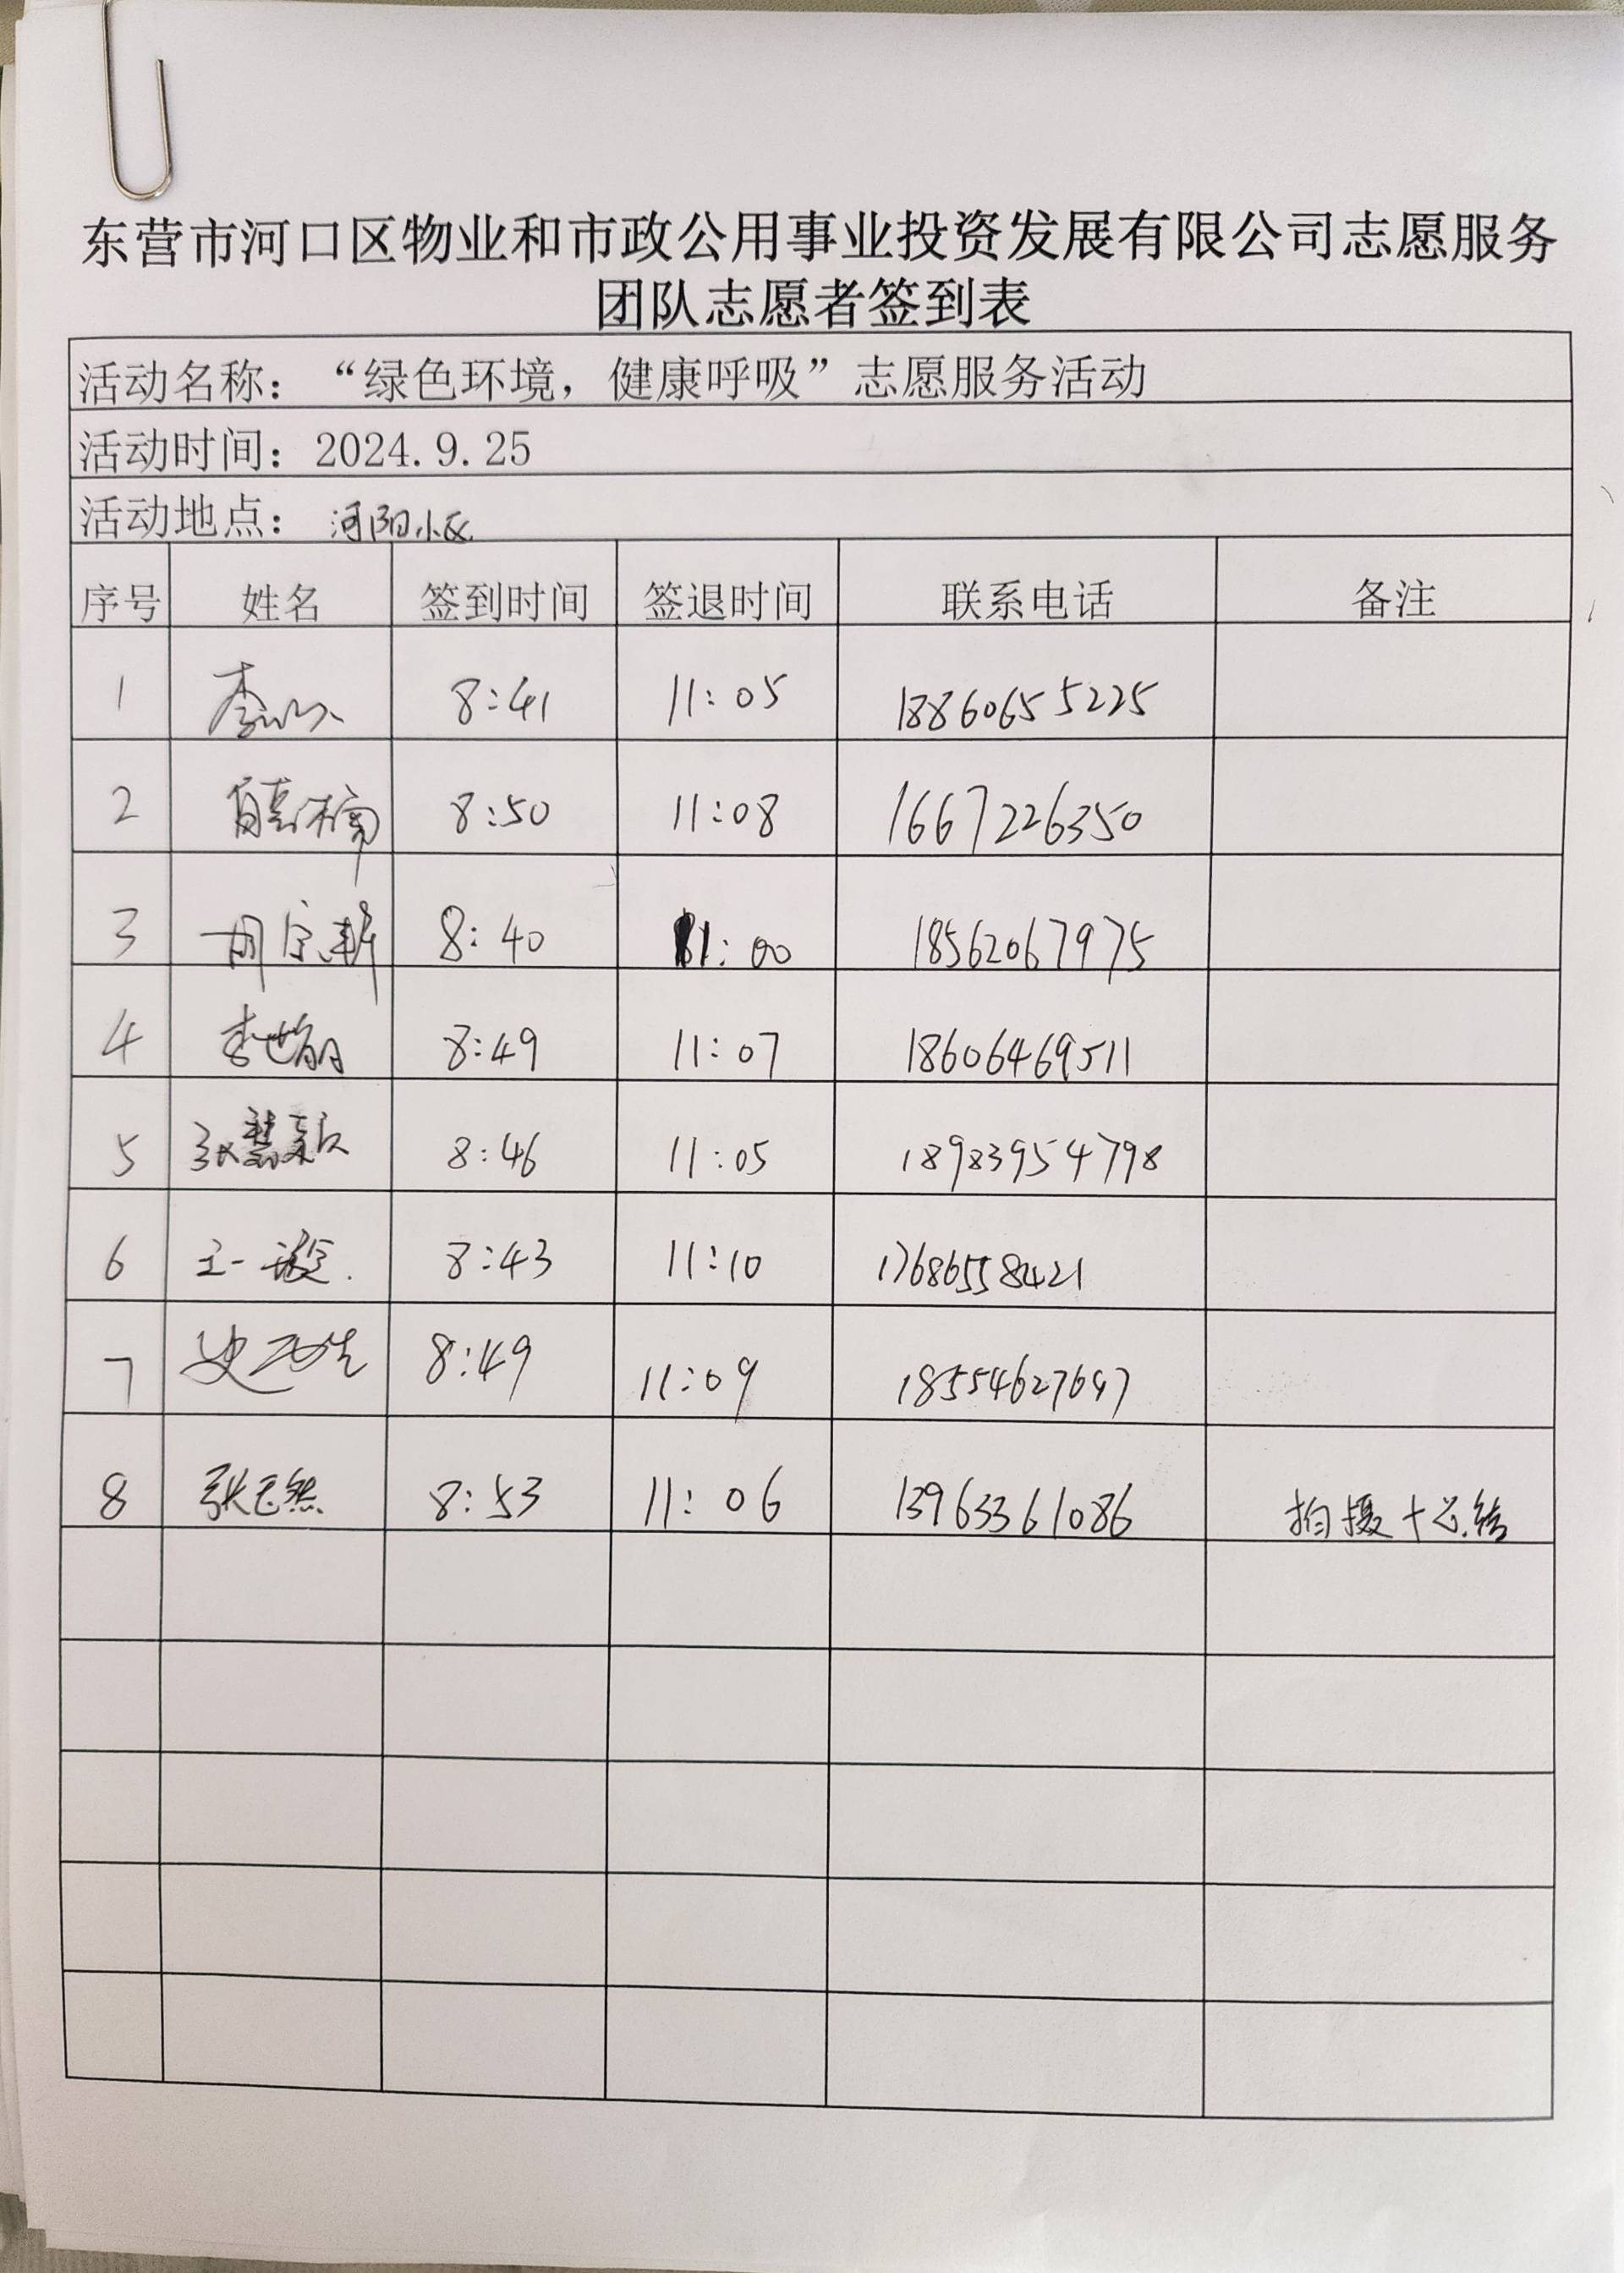 东营市河口区物业和市政公用事业投资发展有限公司志愿服务
团队志愿者签到表
活动名称：“绿色环境，健康呼吸”志愿服务活动
活动时间：2024.9.25
活动地点：河阳小区
序号 姓名 签到时间 签退时间 联系电话 备注
1 8:41 11:05 18860655225
2 8:50 11:08 1667226350
3 8:40 11:00 18562067975
4 8:49 11:07 18606469511
5 张慧颖 8:46 11:05 18983954798
6 王一璇 8:43 11:10 17686558421
7 8:49 11:09 18554627697
8 8:53 11:06 13963361086 拍摄+总结